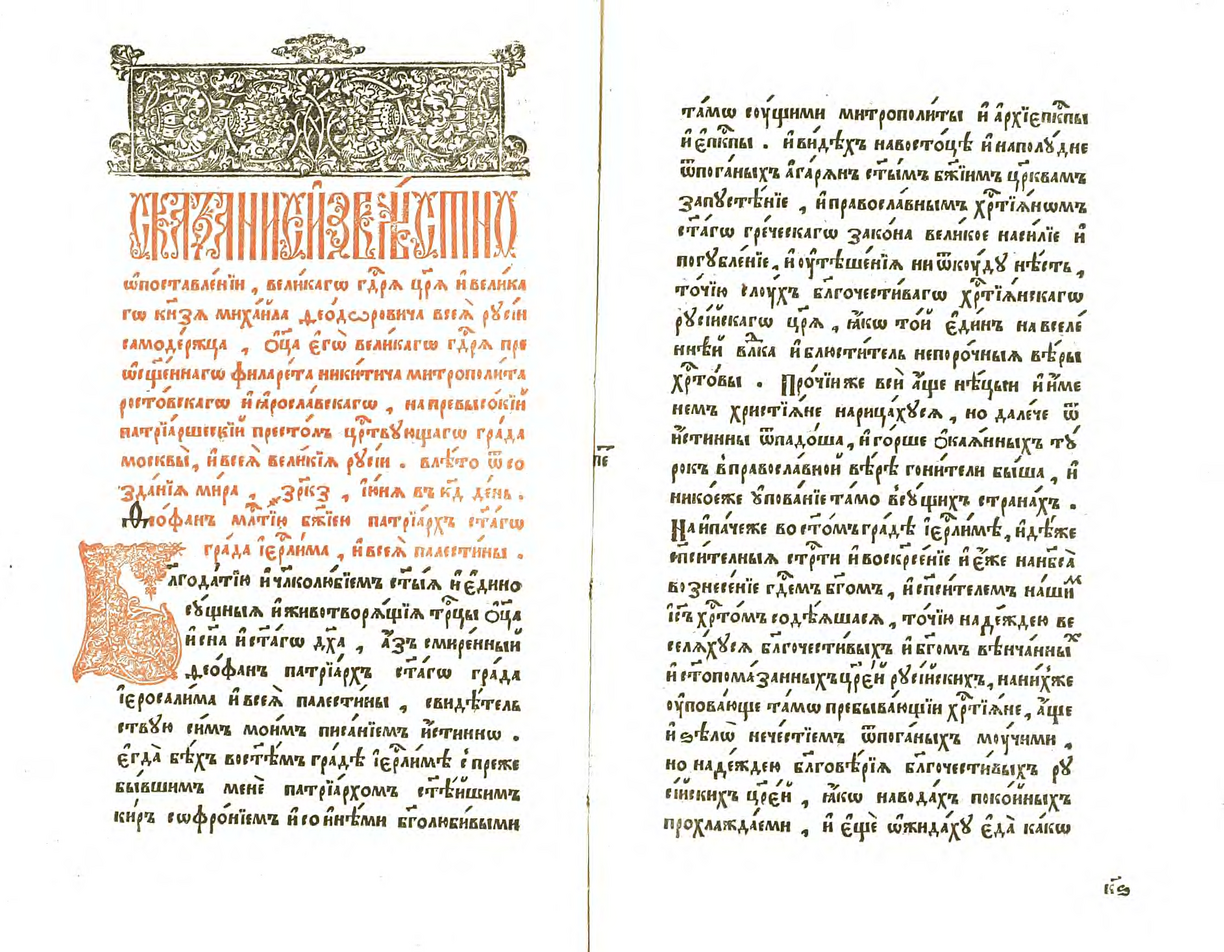 СКАЗАНИЕ И҆ЗВѢ́СТНО
ѡ҆поставле́нїи , вели́кагѡ гдⷭ҇рѧ цр҃ѧ и҆ вели́ка
гѡ кн҃зѧ миха́ила ѳео́дѡровича всеѧ̀ рꙋсі́и
самоде́ржца , ѻ҆ц҃а є҆гѡ̀ вели́кагѡ гдⷭ҇рѧ пре
ѡ҆сщ҃е́ннагѡ филаре́та ники́тича митрополи́та
росто́вскагѡ и҆ ꙗ҆росла́вскагѡ , на превысо́кїй
патрїа́ршескїй престо́лъ црⷭ҇твꙋющагѡ гра́да
москвы̀ , и҆ всеѧ̀ вели́кїѧ рꙋсі́и . влѣ́то ѿ со
зда́нїѧ ми́ра , ҂зрк҃з , і҆ю́нѧ въ к҃д де́нь .
Ѳео́фанъ млⷭ҇тїю бж҃їею патрїа́рхъ ст҃а́гѡ
гра́да і҆ерⷭ҇ли́ма , и҆ всеѧ̀ палести́ны .
Бл҃года́тїю и҆ чл҃колю́бїемъ ст҃ы́ѧ и҆ є҆дино
сꙋ́щныѧ и҆ животворѧ́щїѧ трⷪ҇цы ѻ҆ц҃а
и҆ сн҃а и҆ ст҃а́гѡ дх҃а , а҆́зъ смире́нный
ѳео́фанъ патрїа́рхъ ст҃а́гѡ гра́да
і҆еросали́ма и҆ всеѧ̀ палести́ны , свидѣ́тель
ствꙋю си́мъ мои́мъ писа́нїемъ и҆́стиннѡ .
є҆гда̀ бѣ́хъ во ст҃ѣ́мъ гра́дѣ і҆ерⷭ҇ли́мѣ с̾ пре́же
бы́вшимъ менѐ патрїа́рхомъ ст҃ѣ́йшимъ
ки́ръ сѡфро́нїемъ и҆ со и҆нѣ́ми бг҃олюби́выми
та́мѡ соу́щими митрополи́ты и҆ а҆рхїепⷭ҇кпы
и҆ є҆пⷭ҇кпы . и҆ ви́дѣхъ на восто́цѣ и҆ на полꙋ́дне
ѿ пога́ныхъ а҆гарѧ́нъ ст҃ы́мъ бж҃їимъ цр҃квамъ
запꙋстѣ́нїе , и҆ правосла́внымъ хрⷭ҇тїѧ́нѡмъ
ст҃а́гѡ гре́ческагѡ зако́на вели́кое наси́лїе и҆
погꙋбле́нїе , и҆ оу҆тѣше́нїѧ ни ѿкоу́дꙋ нѣ́сть ,
то́чїю слоу́хъ бл҃гочести́вагѡ хрⷭ҇тїѧ́нскагѡ
рꙋсі́йскагѡ цр҃ѧ̀ , ꙗ҆́кѡ то́й є҆ди́нъ на вселе́
ннѣй влⷣка и҆ блюсти́тель непоро́чныѧ вѣ́ры
хрⷭ҇то́вы . Про́чїи же всѝ а҆́ще нѣ́цыи и҆ и҆́ме
немъ христїѧ́не нарица́хꙋсѧ , но дале́че ѿ
и҆́стинны ѿпадо́ша , и҆ го́рше ѻ҆каѧ́нныхъ тꙋ́
рокъ в̾ правосла́вной вѣ́рѣ гони́тели бы́ша , и҆
нико́еже ᲂу҆пова́нїе та́мо в̾ сꙋ́щихъ страна́хъ .
На и҆па́чеже во ст҃о́мъ гра́дѣ і҆ерⷭ҇ли́мѣ , и҆дѣ́же
сп҃си́тельныѧ стрⷭ҇ти и҆ воскрⷭ҇е́нїе и҆ є҆́же на нб҃са̀
вознесе́нїе гдⷭ҇емъ бг҃омъ , и҆ сп҃си́телемъ на́шиⷨ
і҆с҃ъ хрⷭ҇то́мъ содѣ́ѧшасѧ , то́чїю наде́ждею ве
селѧ́хꙋсѧ бл҃гочести́выхъ и҆ бг҃омъ вѣнча́нныⷯ
и҆ стопома́занныхъ цр҃е́й рꙋсі́йскихъ , на ни́хже
оу҆пова́юще та́мѡ пребыва́ющїи хрⷭ҇тїѧ́не , а҆́ще
и҆ ѕѣлѡ̀ нече́стїемъ ѿ пога́ныхъ моу́чими ,
но наде́ждею бл҃говѣ́рїѧ бл҃гочести́выхъ рꙋ
сі́йскихъ цр҃е́й , ꙗ҆́кѡ на вода́хъ поко́йныхъ
прохлажда́еми , и҆ є҆щѐ ѡ҆жида́хꙋ є҆да̀ ка́кѡ
п҃е
к҃ѕ